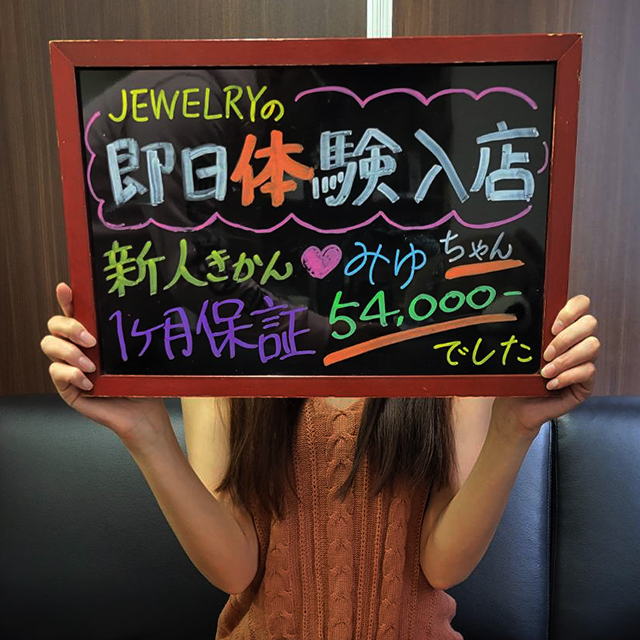 JEWELRYの
即日体験入店
新人きかん♥みゆちゃん
1ヶ月保証 54,000-
でした